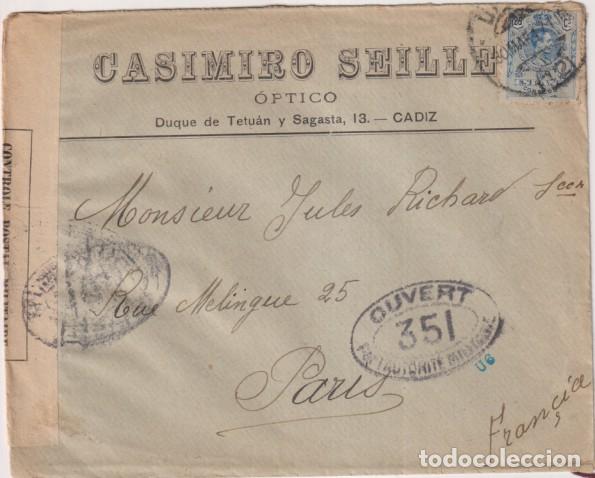 CASIMIRO SEILLE
ÓPTICO
Duque de Tetuán y Sagasta, 13. — CADIZ
CONTROLE POSTAL MILITAIRE
Monsieur Jules Richard
Rue Melingue 25
Paris
OUVERT
351
PAR L'AUTORITÉ MILITAIRE
U6
Françia
todocoleccion.net